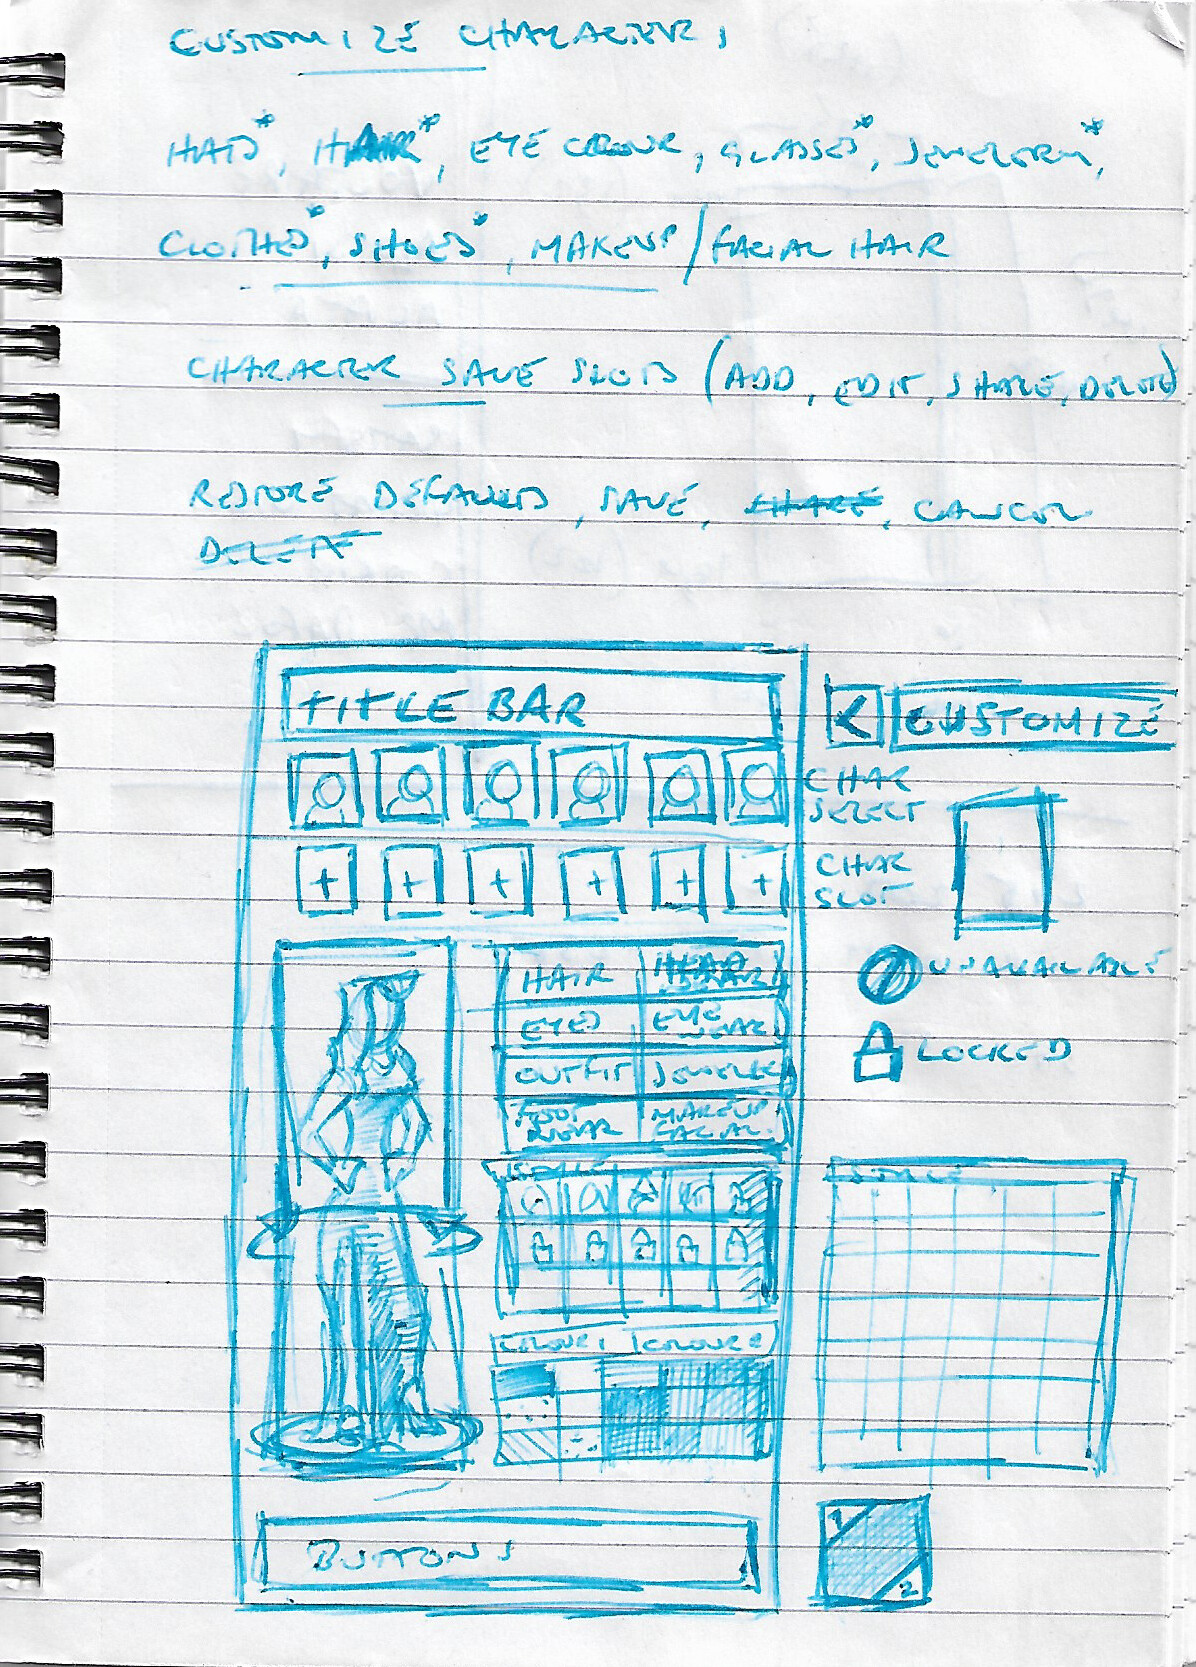 CUSTOMIZE CHARACTERS
HATS*, HAIR*, EYE COLOUR, GLASSES*, JEWELERY*,
CLOTHES*, SHOES*, MAKEUP/FACIAL HAIR
CHARACTER SAVE SLOTS (ADD, EDIT, SHARE, DELETE)
RESTORE DEFAULTS, SAVE, SHARE, CANCEL
DELETE
TITLE BAR
< CUSTOMIZE
CHAR
SELECT
+ + + + + +
CHAR
SLOT
HAIR
HEAD
WEAR
EYES
EYE
WEAR
OUTFIT
JEWELERY
FOOT
WEAR
MAKEUP
FACIAL
UNAVAILABLE
LOCKED
STYLE
COLOUR 1
COLOUR 2
STYLE
BUTTONS
1
2